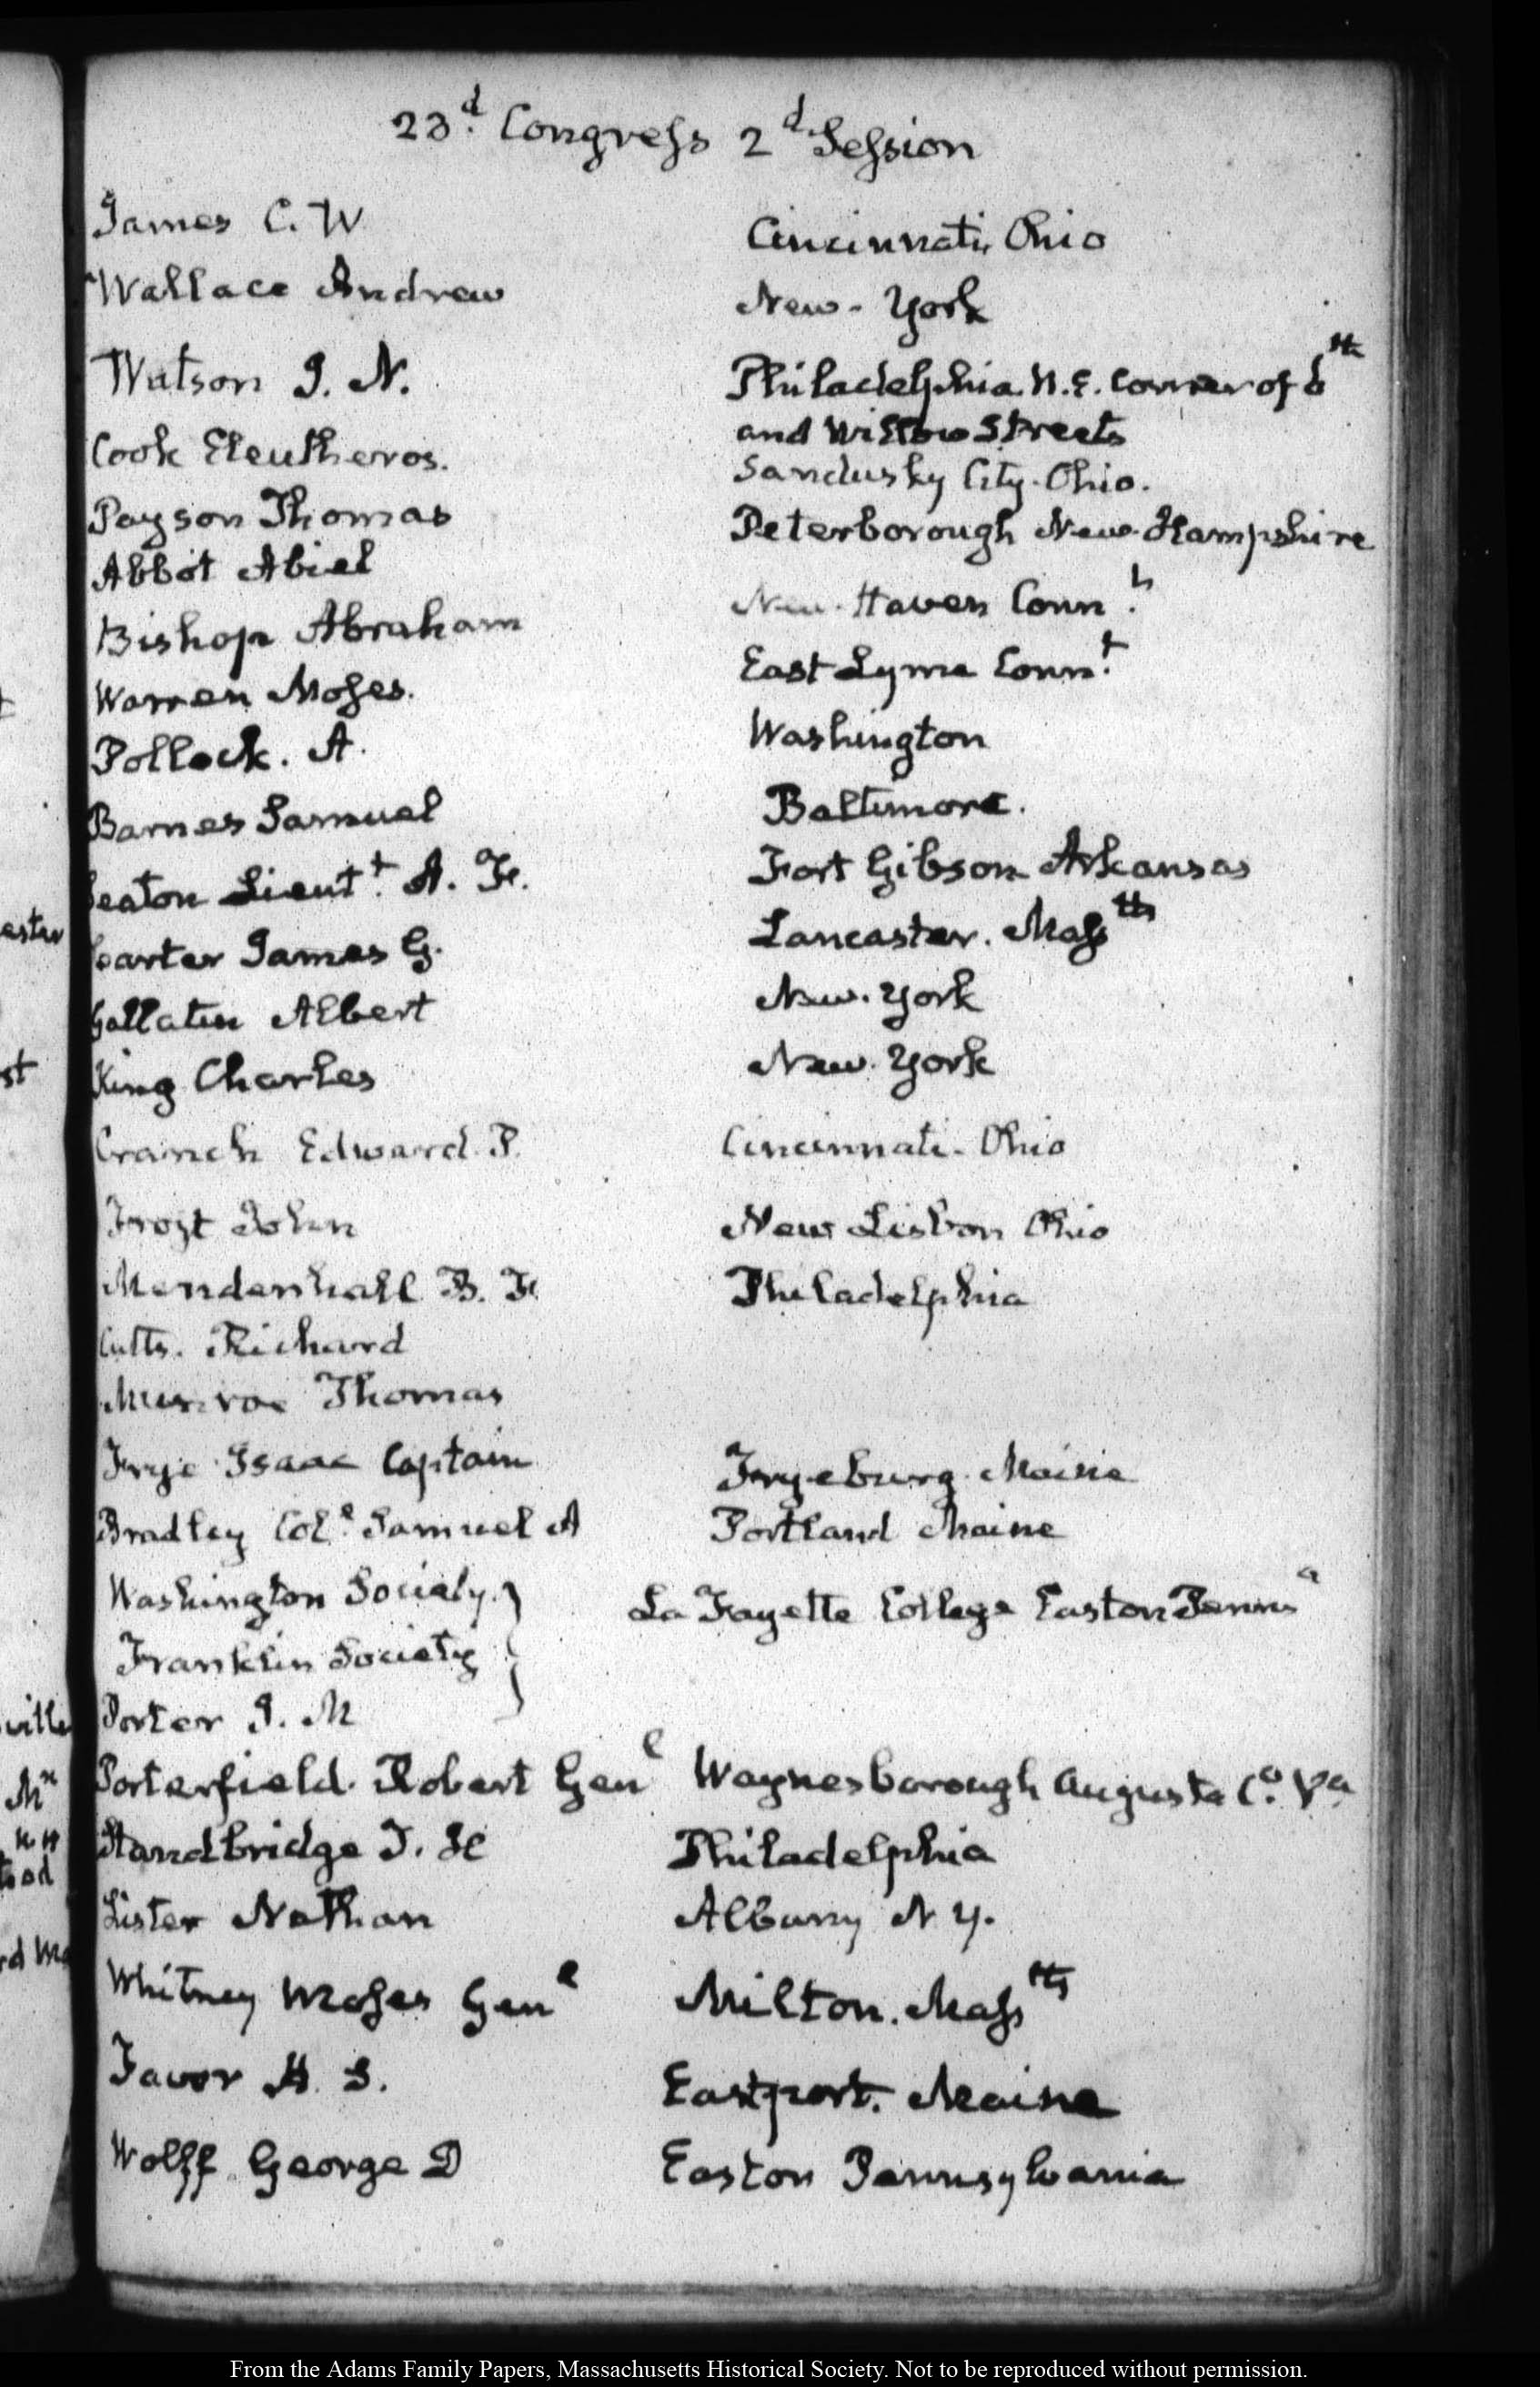 23.d Congress 2d Session
James C. W Cincinnati, Ohio
Wallace Andrew New-York
Watson J. N. Philadelphia. N.E. Corner of 6th
and Willow Streets
Cook Eleutheros. Sandusky City. Ohio.
Payson Thomas Peterborough New-Hampshire
Abbot Abiel
Bishop Abraham New-Haven Conn.t
Warren Moses. East Lyme Conn.t
Pollock. A. Washington
Barnes Samuel Baltimore.
Seaton Lieut.t A. F. Fort Gibson Arkansas
Carter James G. Lancaster. Massts
Gallatin Albert New-York
King Charles New-York
Cranch Edward. P. Cincinnati-Ohio
Frost John New Lisbon Ohio
Mendenhall B. F. Philadelphia
Cutts. Richard
Munroe Thomas
Frye Isaac Captain Fryeburg. Maine
Bradley Col.l Samuel A Portland Maine
Washington Society. La Fayette College Easton Pennsa
Franklin Society
Porter J. M
Porterfield. Robert Genl Waynesborough Augusta Co. Va
Standbridge J. H Philadelphia
Lister Nathan Albany N Y.
Whitney Moses Genl Milton. Massts
Favor H. S. Eastport. Maine
Wolff George D Easton Pennsylvania
From the Adams Family Papers, Massachusetts Historical Society. Not to be reproduced without permission.